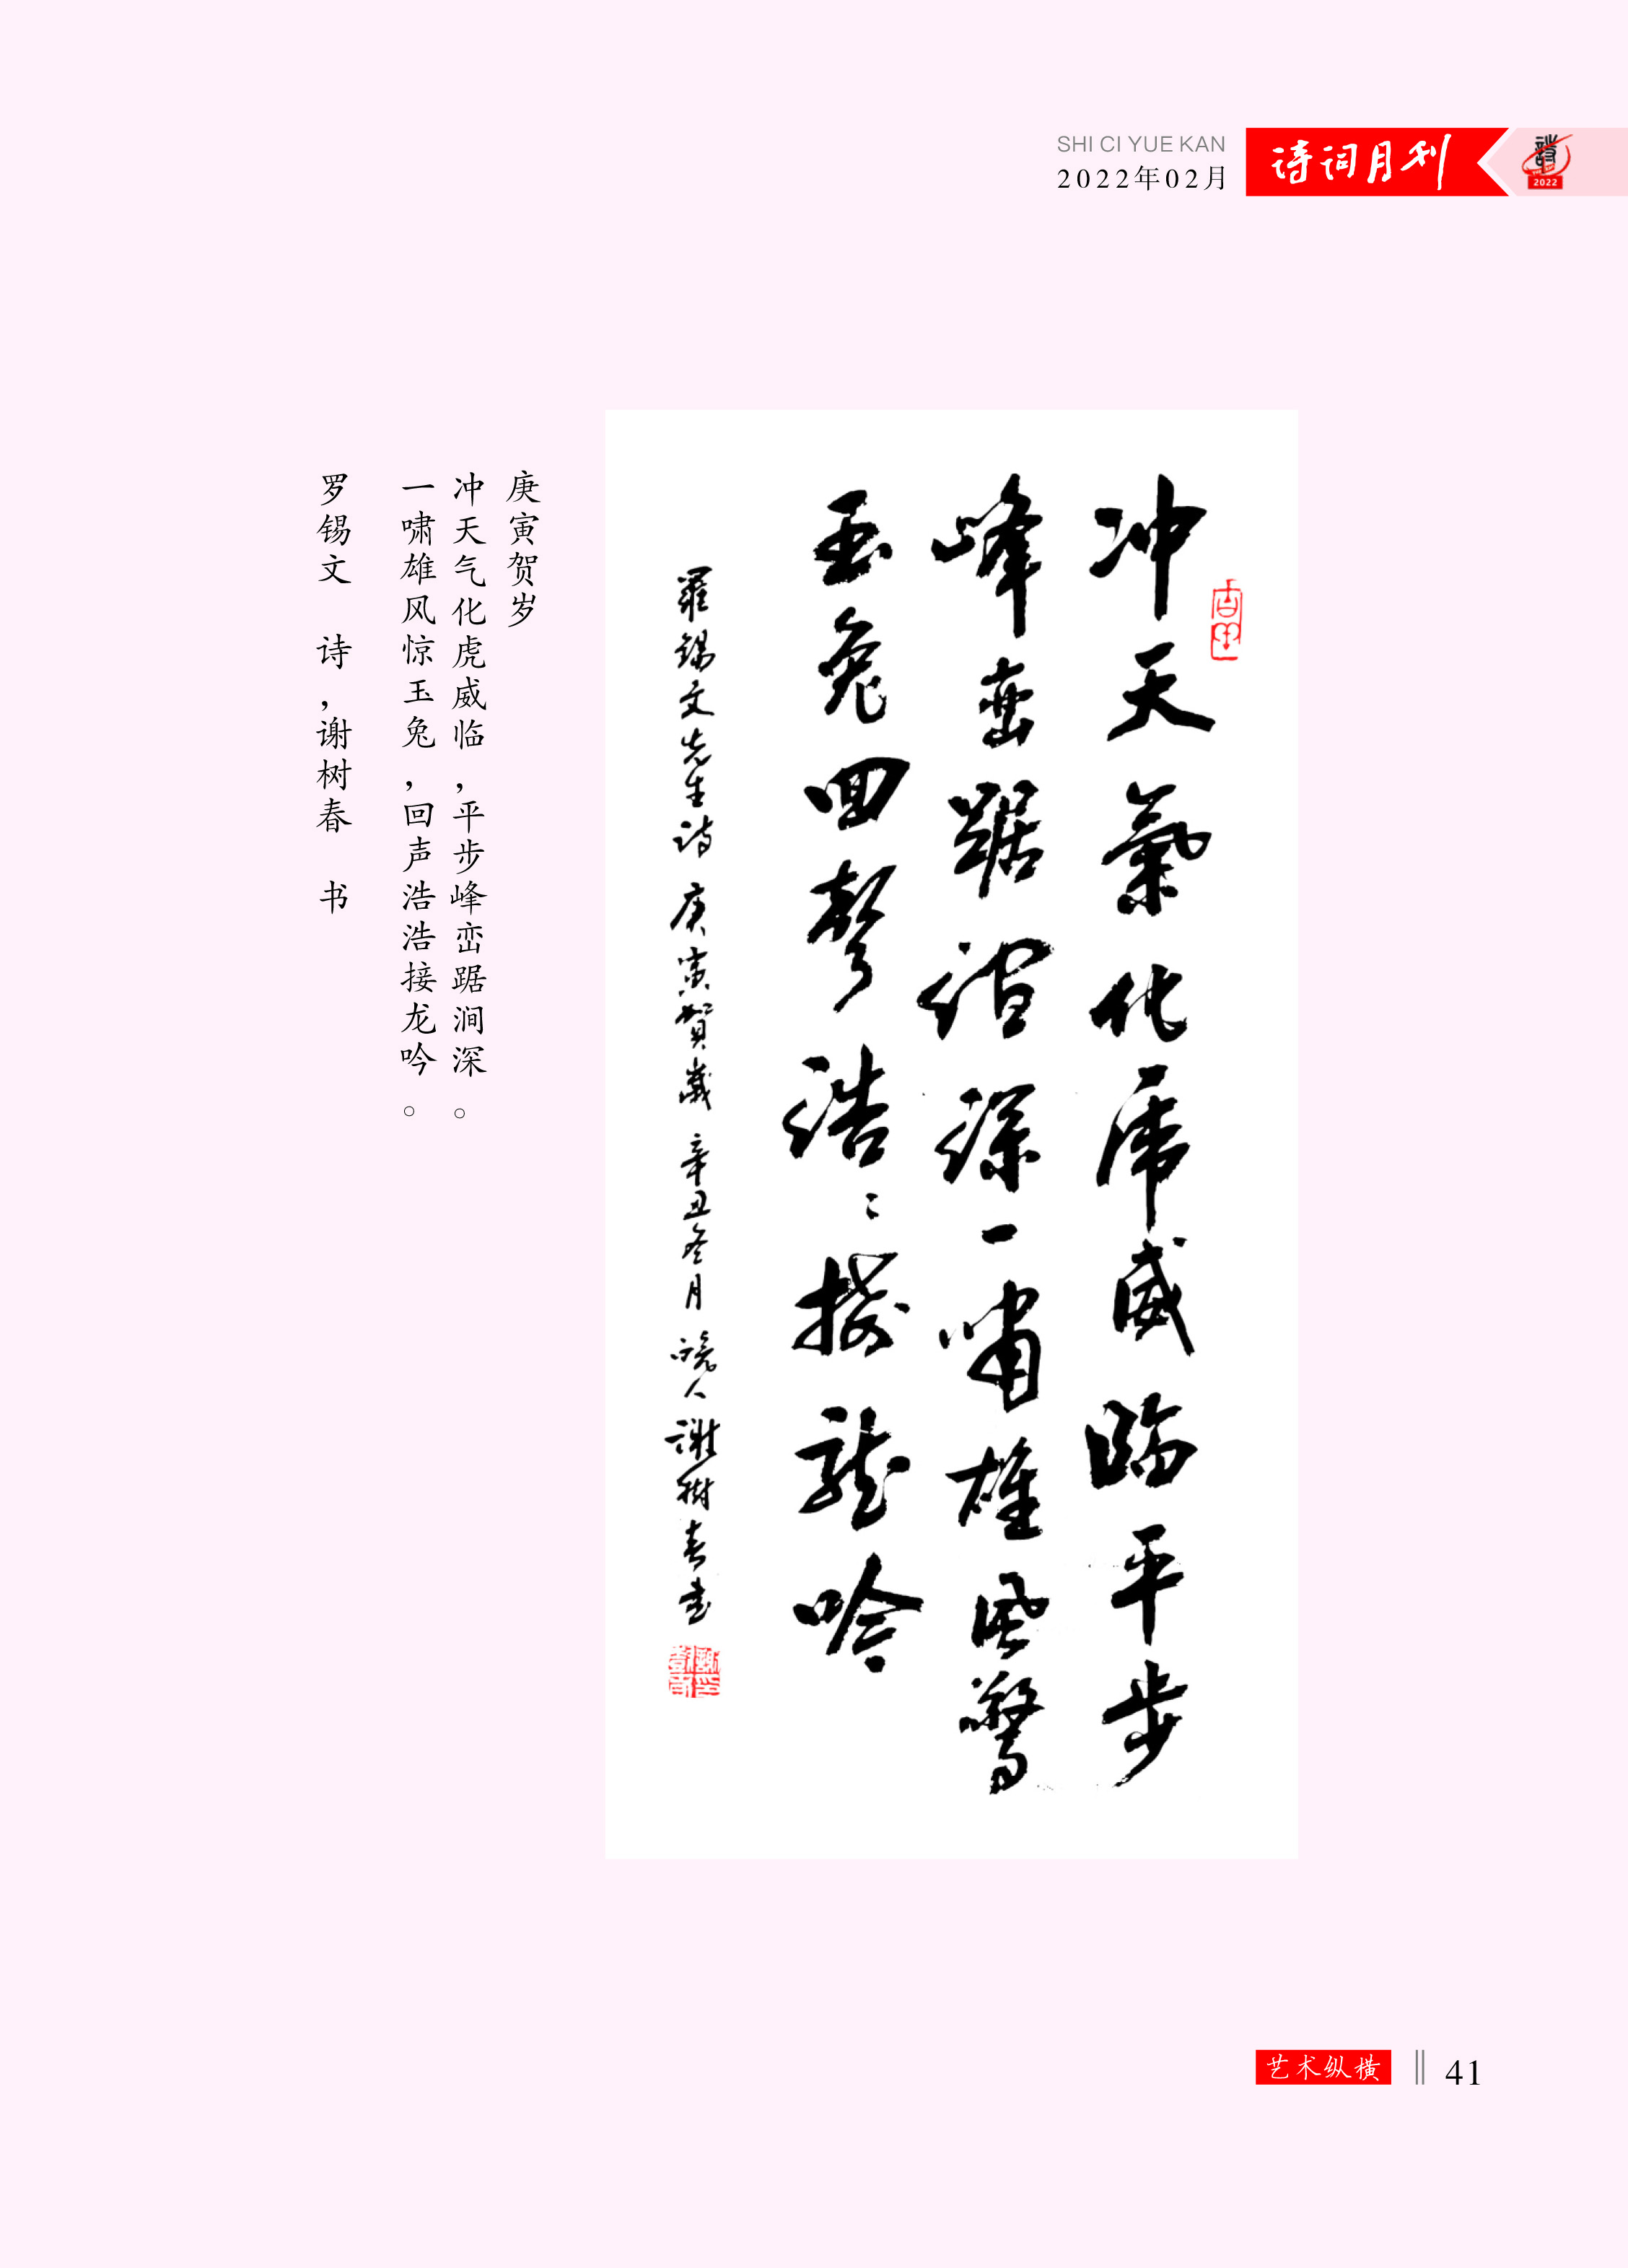 SHI CI YUE KAN
2022年02月
诗词月刊
2022
冲天氣化虎威臨平步
峰峦踞涧深一啸雄风驚
玉兔回聲浩〻接龍吟
羅錫文先生詩 庚寅賀歲 辛丑冬月 皖人謝樹春書
庚寅贺岁
冲天气化虎威临，平步峰峦踞涧深。
一啸雄风惊玉兔，回声浩浩接龙吟。
罗锡文 诗，谢树春 书
艺术纵横
41